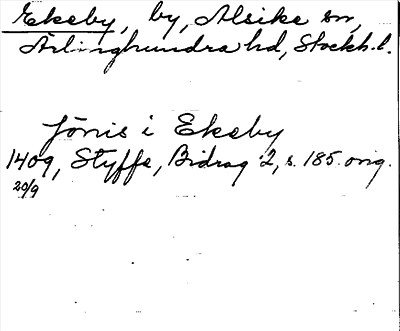 Ekeby, by, Alsike sn,
Ärlinghundra hd, Stockh.l.
Jönis i Ekeby
1409, Styffe, Bidrag 2, s. 185. orig.
20/9